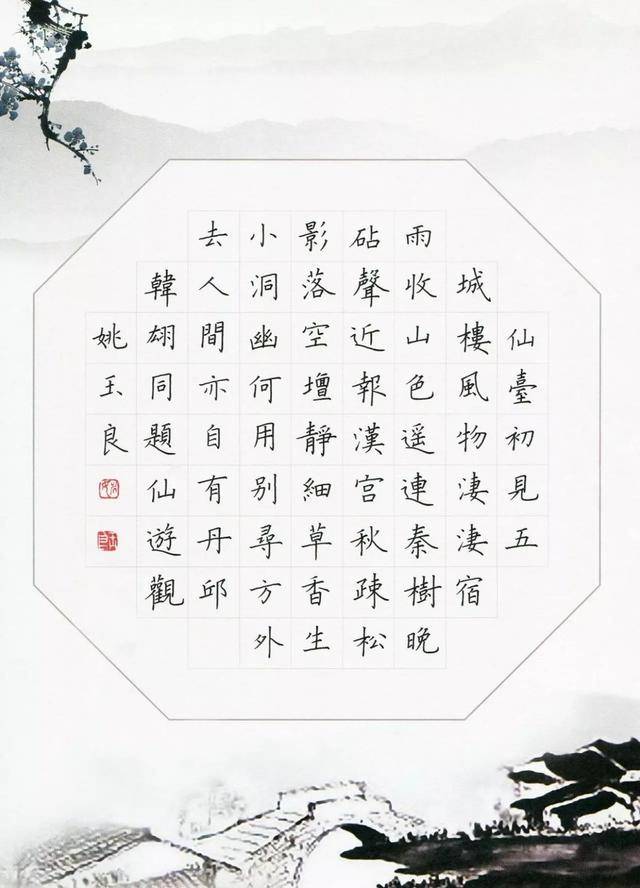 仙臺初見五
城樓風物淒淒宿
雨收山色遥連秦樹晚
砧聲近報漢宮秋疎松
影落空壇靜細草香生
小洞幽何用別尋方外
去人間亦自有丹邱
韓翃同題仙遊觀
姚玉良